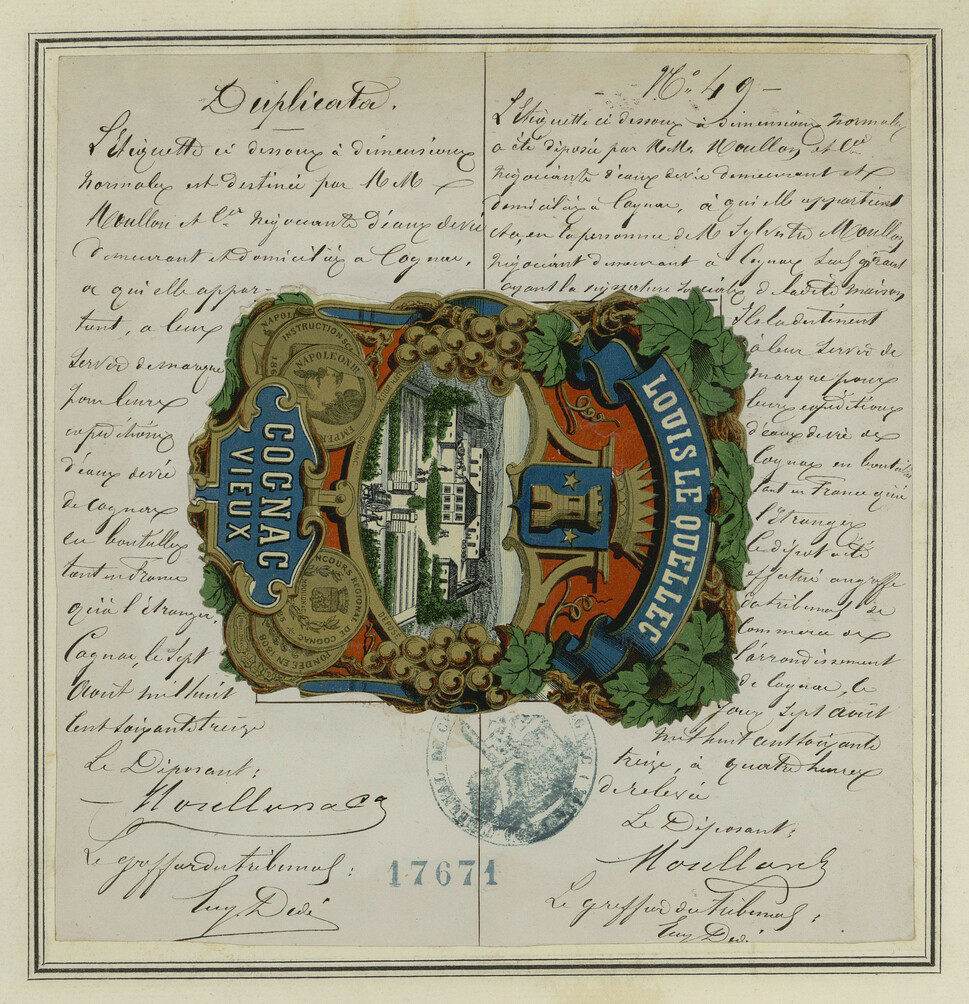 Duplicata.
L'Etiquette ci dessous à dimensions
normales est destinée par MM
Moullon et Cie négociants d'eaux de vie
demeurant et domiciliés à Cognac,
à qui elle appar-
tient, à leur
servir de marque
pour leurs
expéditions
d'eaux de vie
de Cognac
en bouteilles
tant en France
qu'à l'étranger.
Cognac, le sept
Août mil huit
cent soixante treize
Le Déposant:
Moullon & Ce
Le greffier du tribunal:
Eug Dedé
No 49
L'Etiquette ci dessous à dimensions normales
a été déposée par MM. Moullon et Cie
négociants d'eaux de vie demeurant et
domiciliés à Cognac, à qui elle appartient
et ce, en la personne de M Sylvestre Moullon
négociant demeurant à Cognac seul gérant
ayant la signature sociale de ladite maison
Ils la destinent
à leur servir de
marque pour
leurs expéditions
d'eaux de vie de
Cognac en bouteilles
tant en France qu'à
l'étranger
Le dépôt a été
effectué au greffe
du tribunal de
Commerce de
l'arrondissement
de Cognac, le
jour sept août
mil huit cent soixante
treize, à quatre heures
de relevée
Le Déposant:
Moullon &
Le greffier du Tribunal:
Eug Dedé
LOUIS LE QUELLEC
COGNAC
VIEUX
NAPOLEON III
EMPER
INSTRUCTION
CONCOURS REGIONAL DE COGNAC
FONDÉE EN 1808
TRIBUNAL DE
17671